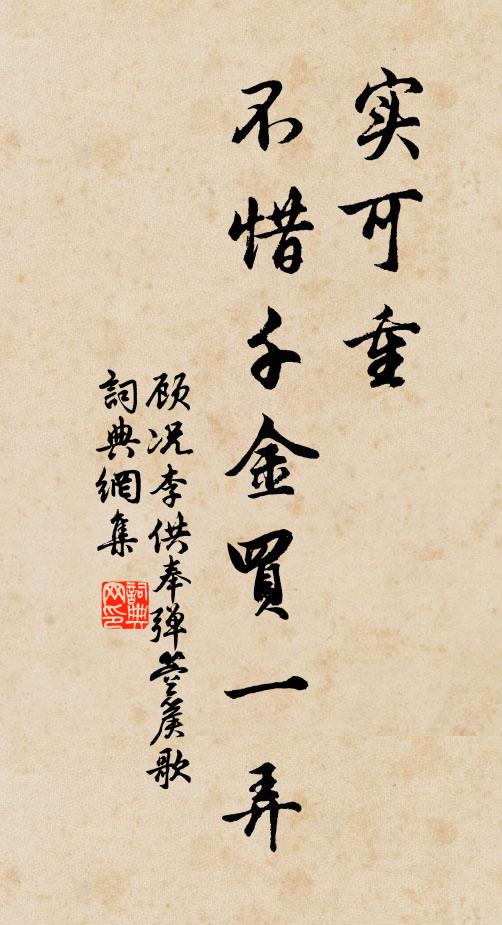 实可重
不惜千金買一弄
顾况李供奉弹箜篌歌
詞典網集
詞典
网印